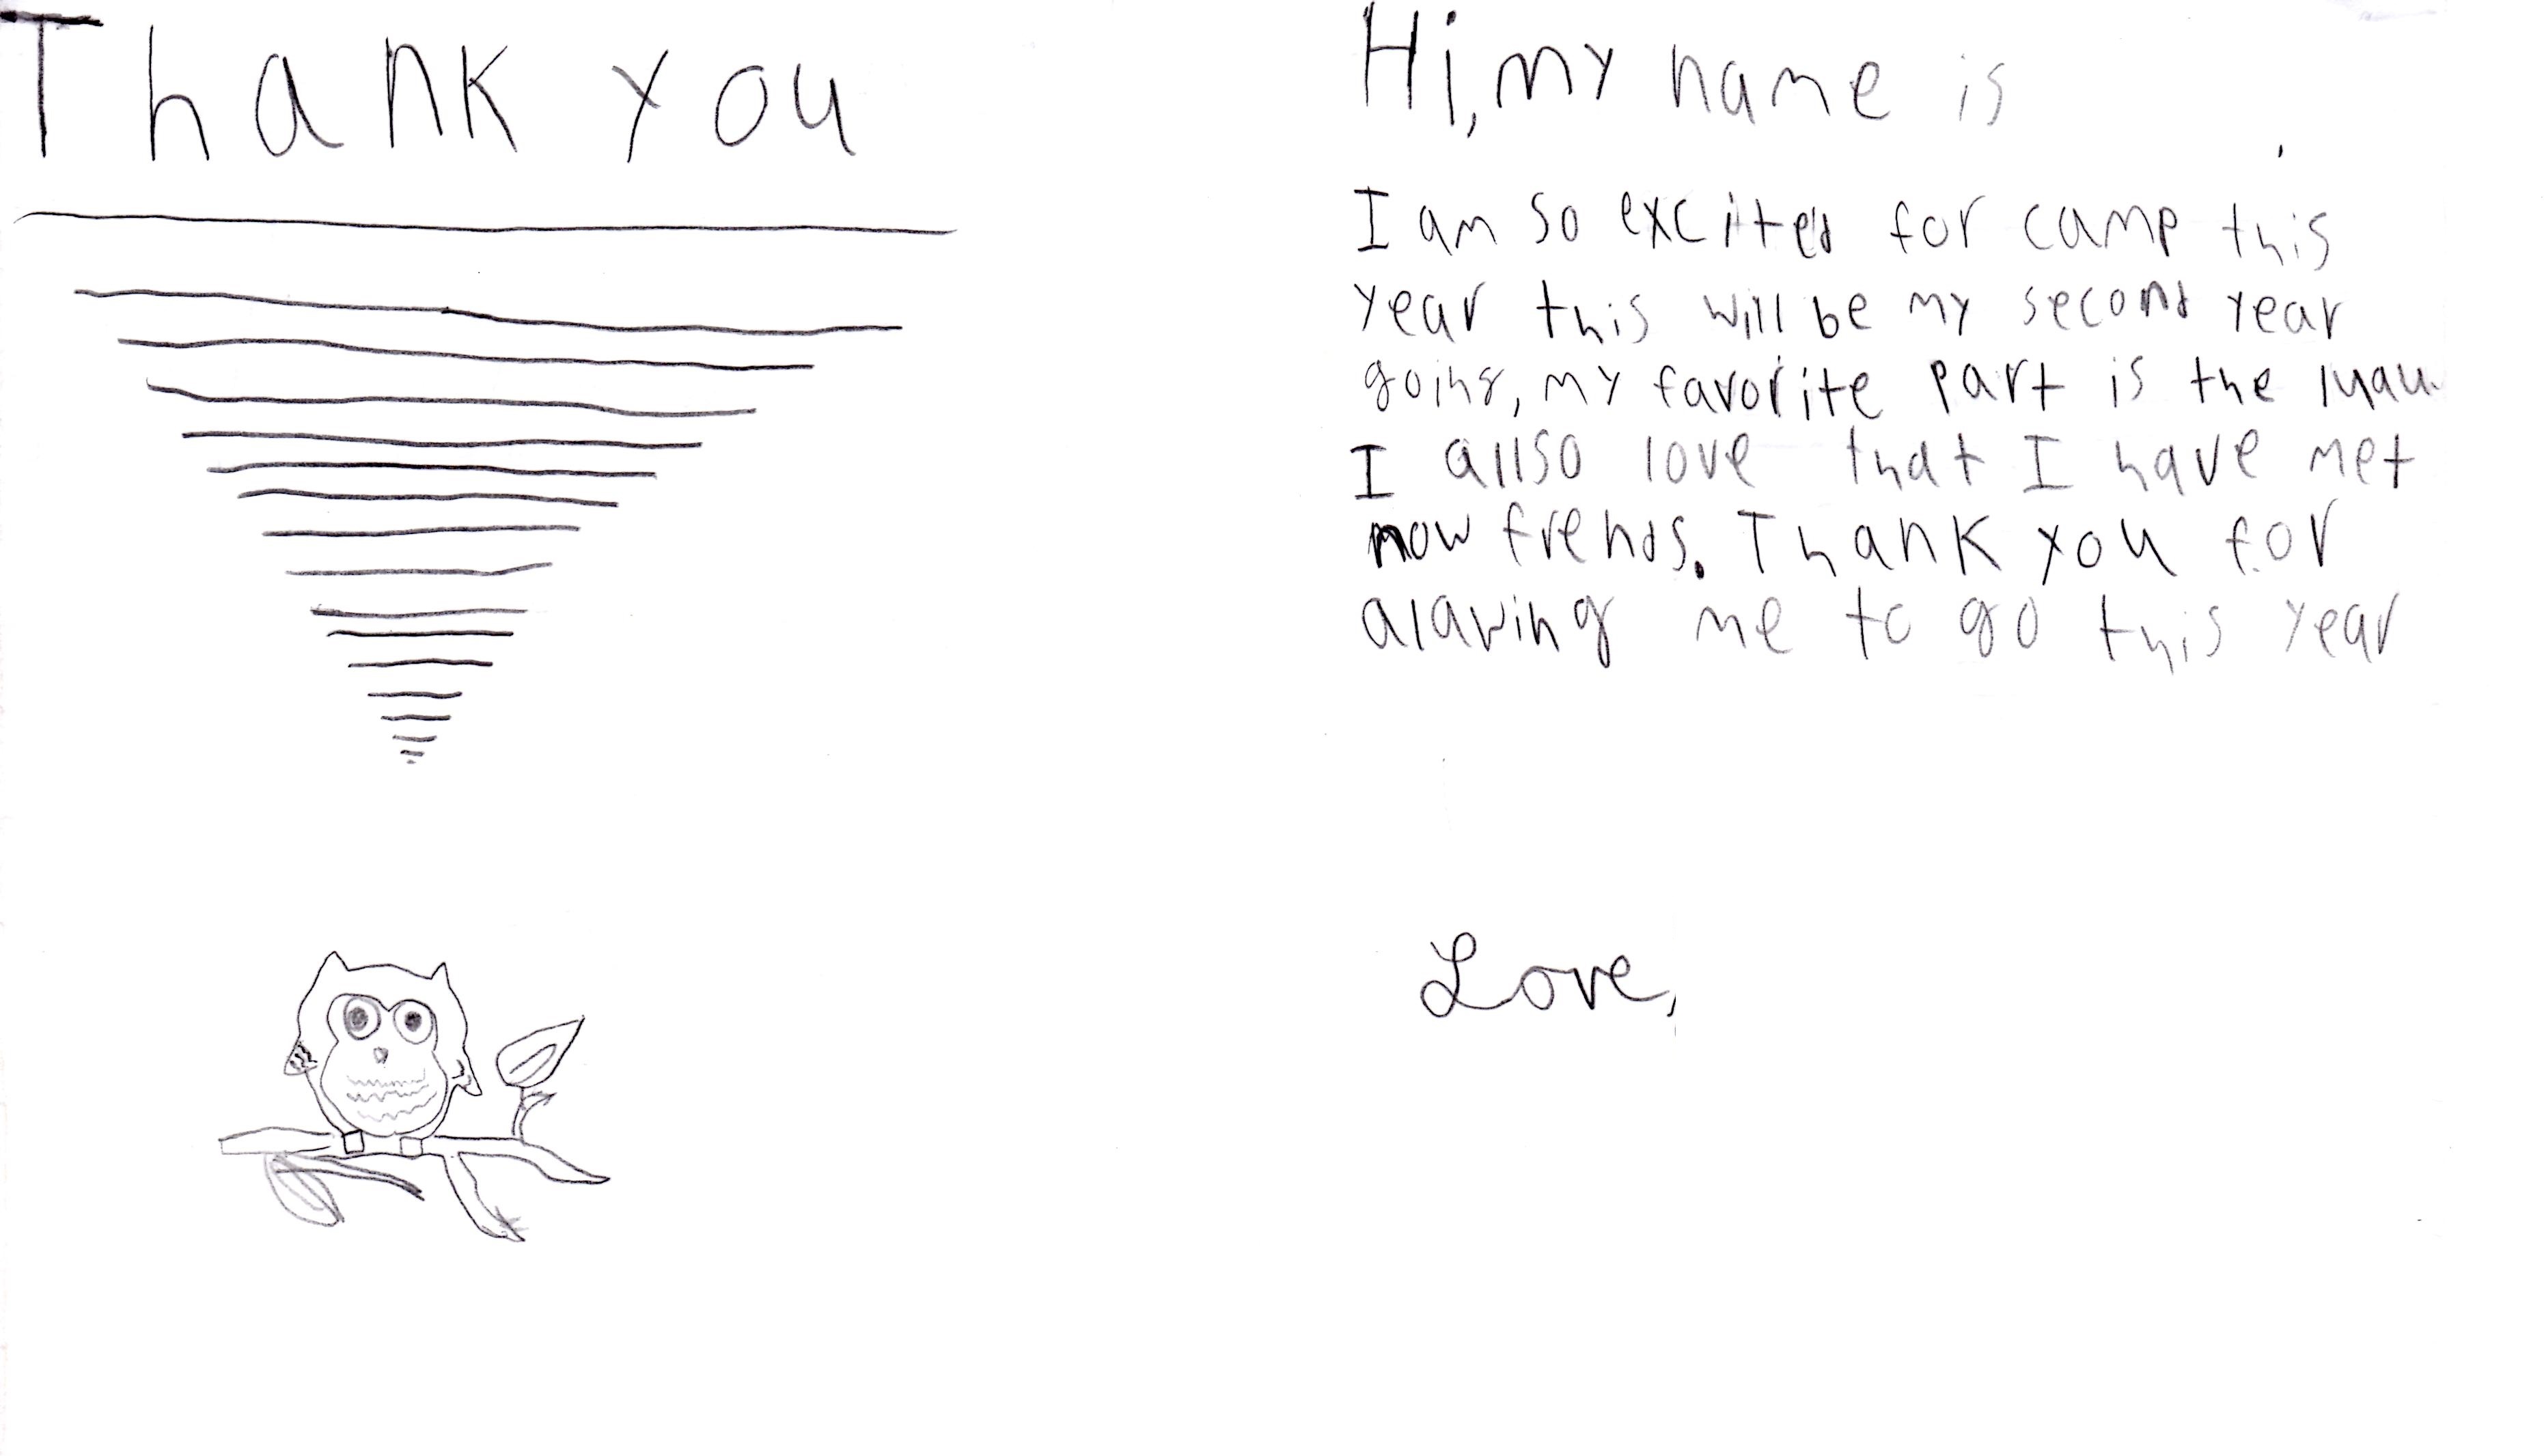 Thank you
Hi, my name is
.
I am so excited for camp this
year this will be my second year
going, my favorite part is the luau.
I allso love that I have met
now frends. Thank you for
alawing me to go this year
Love,